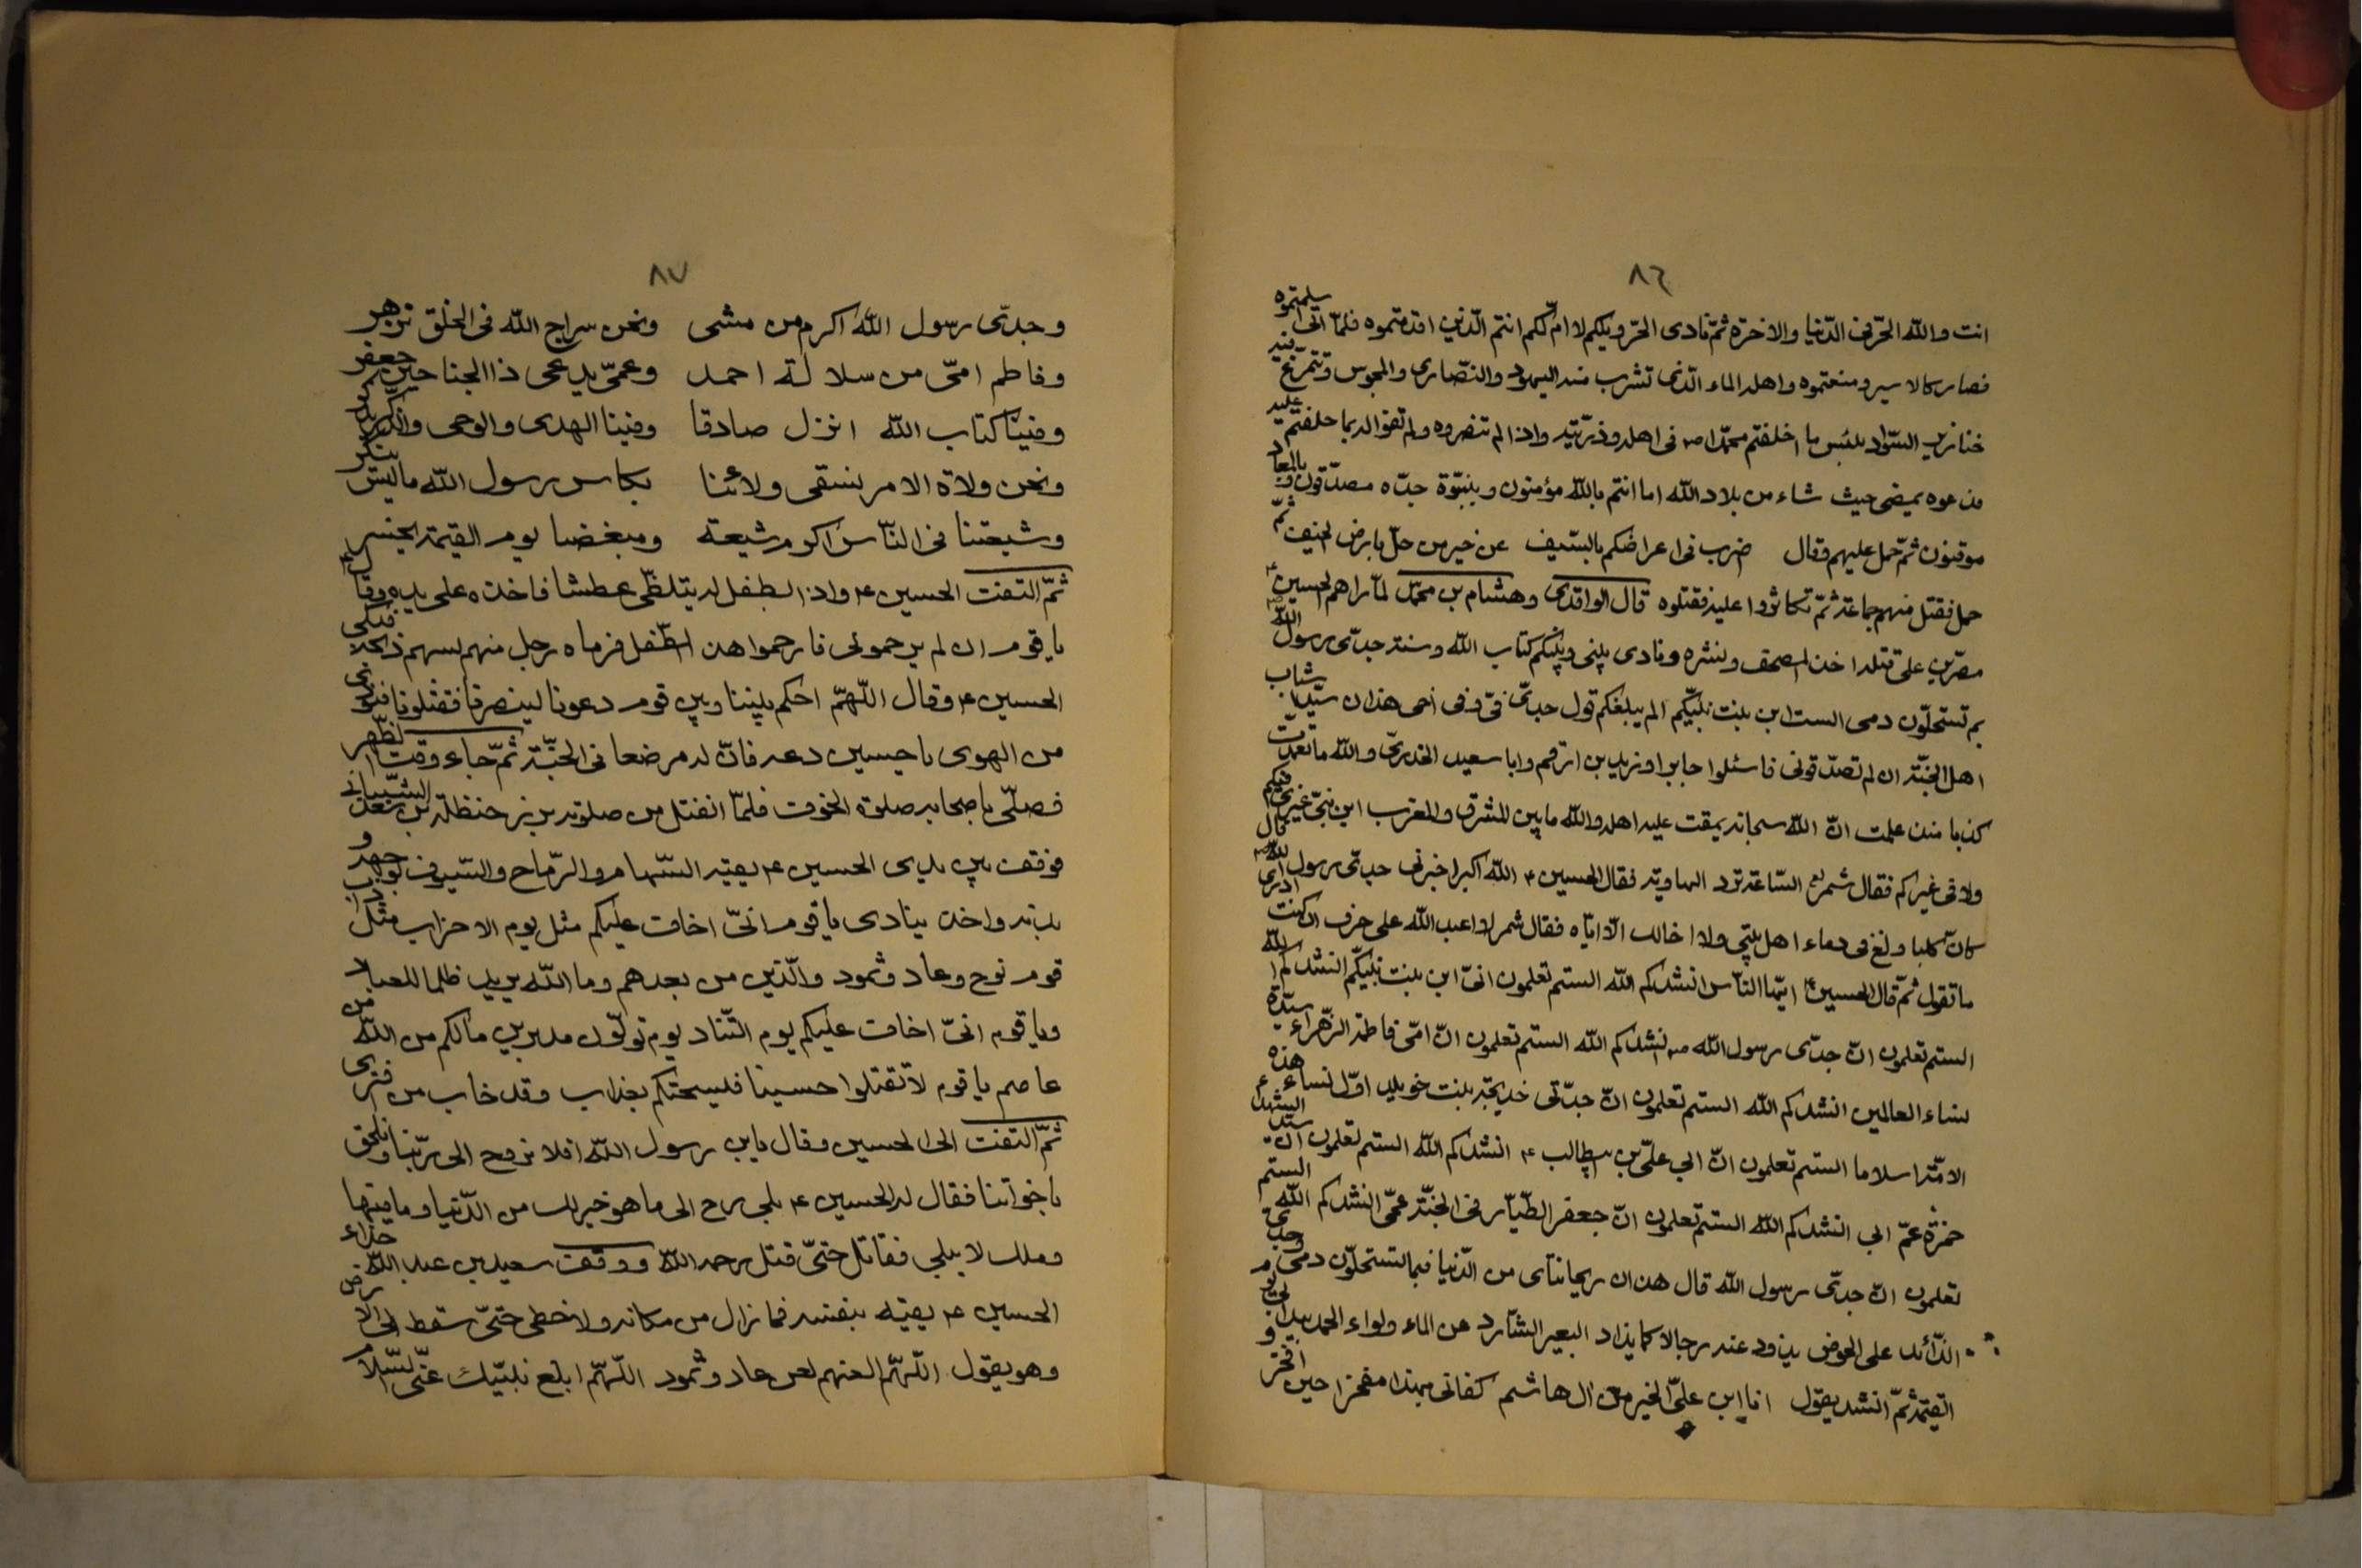 ٨٦
انت والله الحرّ فى الدّنيا والاخرة ثمّ نادى الحرّ ويلكم لا امّ لكم انتم الّذين اقدمتموه فلمّا اتى اسلمتموه
فصار كالاسير ومنعتموه واهله الماء الّذى تشرب منه اليهود والنّصارى والمجوس وتتمرّغ فيه
خنازير السّواد بئس ما اخلفتم محمّدا ص فى اهله وذرّيّته واذا لم تنصروه ولم تفوا له بما حلفتم عليه
فدعوه يمضى حيث شاء من بلاد الله اما انتم بالله مؤمنون وبنبوّة جدّه مصدّقون وبالمعاد
موقنون ثمّ حمل عليهم وقال ضرب فى اعراضكم بالسّيف عن خير من حلّ بارض الخيف ثمّ
حمل فقتل منهم جماعة ثمّ تكاثروا عليه فقتلوه قال الواقدى وهشام بن محمّد لمّا راهم الحسين ع
مصرّين على قتله اخذ المصحف ونشره ونادى بينى وبينكم كتاب الله وسنة جدّى رسول الله ص
بم تستحلّون دمى الست ابن بنت نبيّكم الم يبلغكم قول جدّى فىّ وفى اخى هذان سيّدا شباب
اهل الجنّة ان لم تصدّقونى فاسئلوا جابرا وزيد بن ارقم وابا سعيد الخدرىّ والله ما تعمّدت
كذبا منذ علمت انّ الله سبحانه يمقت عليه اهله والله ما بين المشرق والمغرب ابن نبىّ غيرى فيكم
ولا فى غيركم فقال شمر لع السّاعة ترد الهاوية فقال الحسين ع الله اكبر اخبرنى جدّى رسول الله ص قال
كانّ كلبا ولغ فى دماء اهل بيتى ولا اخالك الّا ايّاه فقال شمر اعبد الله على حرف ان كنت ادرى
ما تقول ثمّ قال الحسين ع ايّها النّاس انشدكم الله الستم تعلمون انّى ابن بنت نبيّكم انشدكم الله
الستم تعلمون انّ جدّى رسول الله ص انشدكم الله الستم تعلمون انّ امّى فاطمة الزّهراء سيّدة
نساء العالمين انشدكم الله الستم تعلمون انّ جدّتى خديجة بنت خويلد اوّل نساء هذه
الامّة اسلاما الستم تعلمون انّ ابى علىّ بن ابيطالب ع انشدكم الله الستم تعلمون انّ سيّد الشهداء
حمزة عمّ ابى انشدكم الله الستم تعلمون انّ جعفر الطّيّار فى الجنّة عمّى انشدكم الله الستم
تعلمون انّ جدّى رسول الله قال هذان ريحانتاى من الدّنيا فبما تستحلّون دمى وجدّى
الذّائد على الحوض يذود عنه رجالا كما يذاد البعير الشّارد عن الماء ولواء الحمد بيد ابى يوم
القيمة ثمّ انشد يقول انا ابن علىّ الخير من ال هاشم كفانى بهذا مفخرا حين افخر و
٨٧
وجدّى رسول الله اكرم من مشى ونحن سراج الله فى الخلق تزهر
وفاطم امّى من سلالة احمد وعمىّ يدعى ذا الجناحين جعفر
وفينا كتاب الله انزل صادقا وفينا الهدى والوحى والخير يذكر
ونحن ولاة الامر نسقى ولائنا بكاس رسول الله ما ليس ينكر
وشيعتنا فى النّاس اكرم شيعة ومبغضنا يوم القيمة يخسر
ثمّ التفت الحسين ع واذا بطفل له يتلظّى عطشا فاخذه على يده وقال
يا قوم ان لم يرحمونى فارحموا هذا الطّفل فرماه رجل منهم بسهم ذبحه فبكى
الحسين ع وقال اللّهمّ احكم بيننا وبين قوم دعونا لينصرنا فقتلونا فنودى
من الهوى يا حسين دعه فانّ له مرضعا فى الجنّة ثمّ جاء وقت الظّهر
فصلّى باصحابه صلوة الخوف فلمّا انفتل من صلوته برز حنظلة بن سعد الشّيبانى
فوقف بين يدى الحسين ع يقيه السّهام والرّماح والسّيوف بوجهه و
بدنه واخذ ينادى يا قوم انّى اخاف عليكم مثل يوم الاحزاب مثل داب
قوم نوح وعاد وثمود والّذين من بعدهم وما الله يريد ظلما للعباد
ويا قوم انىّ اخاف عليكم يوم التّناد يوم تولّون مدبرين مالكم من الله من
عاصم يا قوم لا تقتلوا حسينا فيسحتكم بعذاب وقد خاب من افترى
ثمّ التفت الى الحسين وقال يابن رسول الله افلا نروح الى ربّنا ونلحق
باخواننا فقال له الحسين ع بلى رح الى ما هو خير لك من الدّنيا وما فيها
وملك لا يبلى فقاتل حتىّ قتل رحمه الله ووقف سعيد بن عبد الله حذاء
الحسين ع يقيه بنفسه فما زال من مكانه ولا تخطى حتىّ سقط الى الارض
وهو يقول اللّهمّ العنهم لعن عاد وثمود اللّهمّ ابلغ نبيّك عنّى السّلام